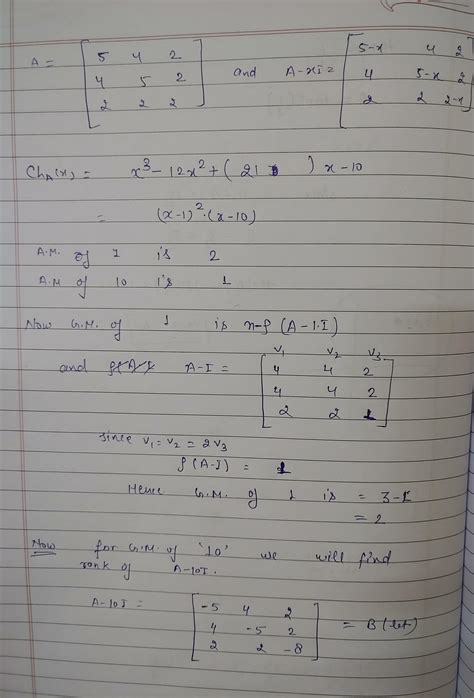 A = [ 5 4 2 ; 4 5 2 ; 2 2 2 ] and A-xI = [ 5-x 4 2 ; 4 5-x 2 ; 2 2 2-x ]
Ch_A(x) = x³ - 12x² + ( 21 ) x - 10
= (x-1)² · (x-10)
A.M. of 1 is 2
A.M of 10 is 1
Now G.M. of 1 is n-ρ (A-1·I)
and A-I = [ V₁ V₂ V₃ ; 4 4 2 ; 4 4 2 ; 2 2 1 ]
since V₁ = V₂ = 2V₃
ρ(A-I) = 1
Hence G.M. of 1 is = 3-1
= 2
Now for G.M. of '10' we will find
rank of A-10I.
A-10I = [ -5 4 2 ; 4 -5 2 ; 2 2 -8 ] = B (let)